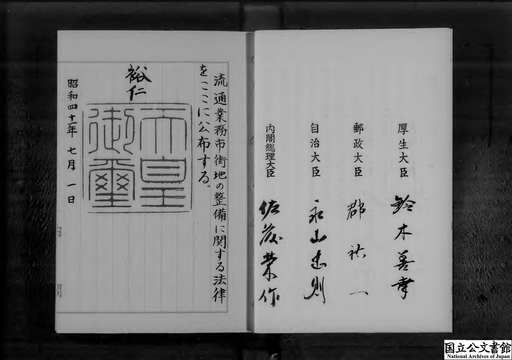 流通業務市街地の整備に関する法律
をここに公布する。
裕仁
天皇
御璽
昭和四十一年七月一日
内閣総理大臣 佐藤榮作
自治大臣 永山忠則
郵政大臣 郡祐一
厚生大臣 鈴木善幸
国立公文書館
National Archives of Japan